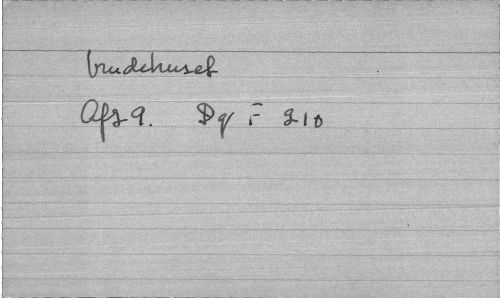 brudehuset
Afs 9. Dq F 210